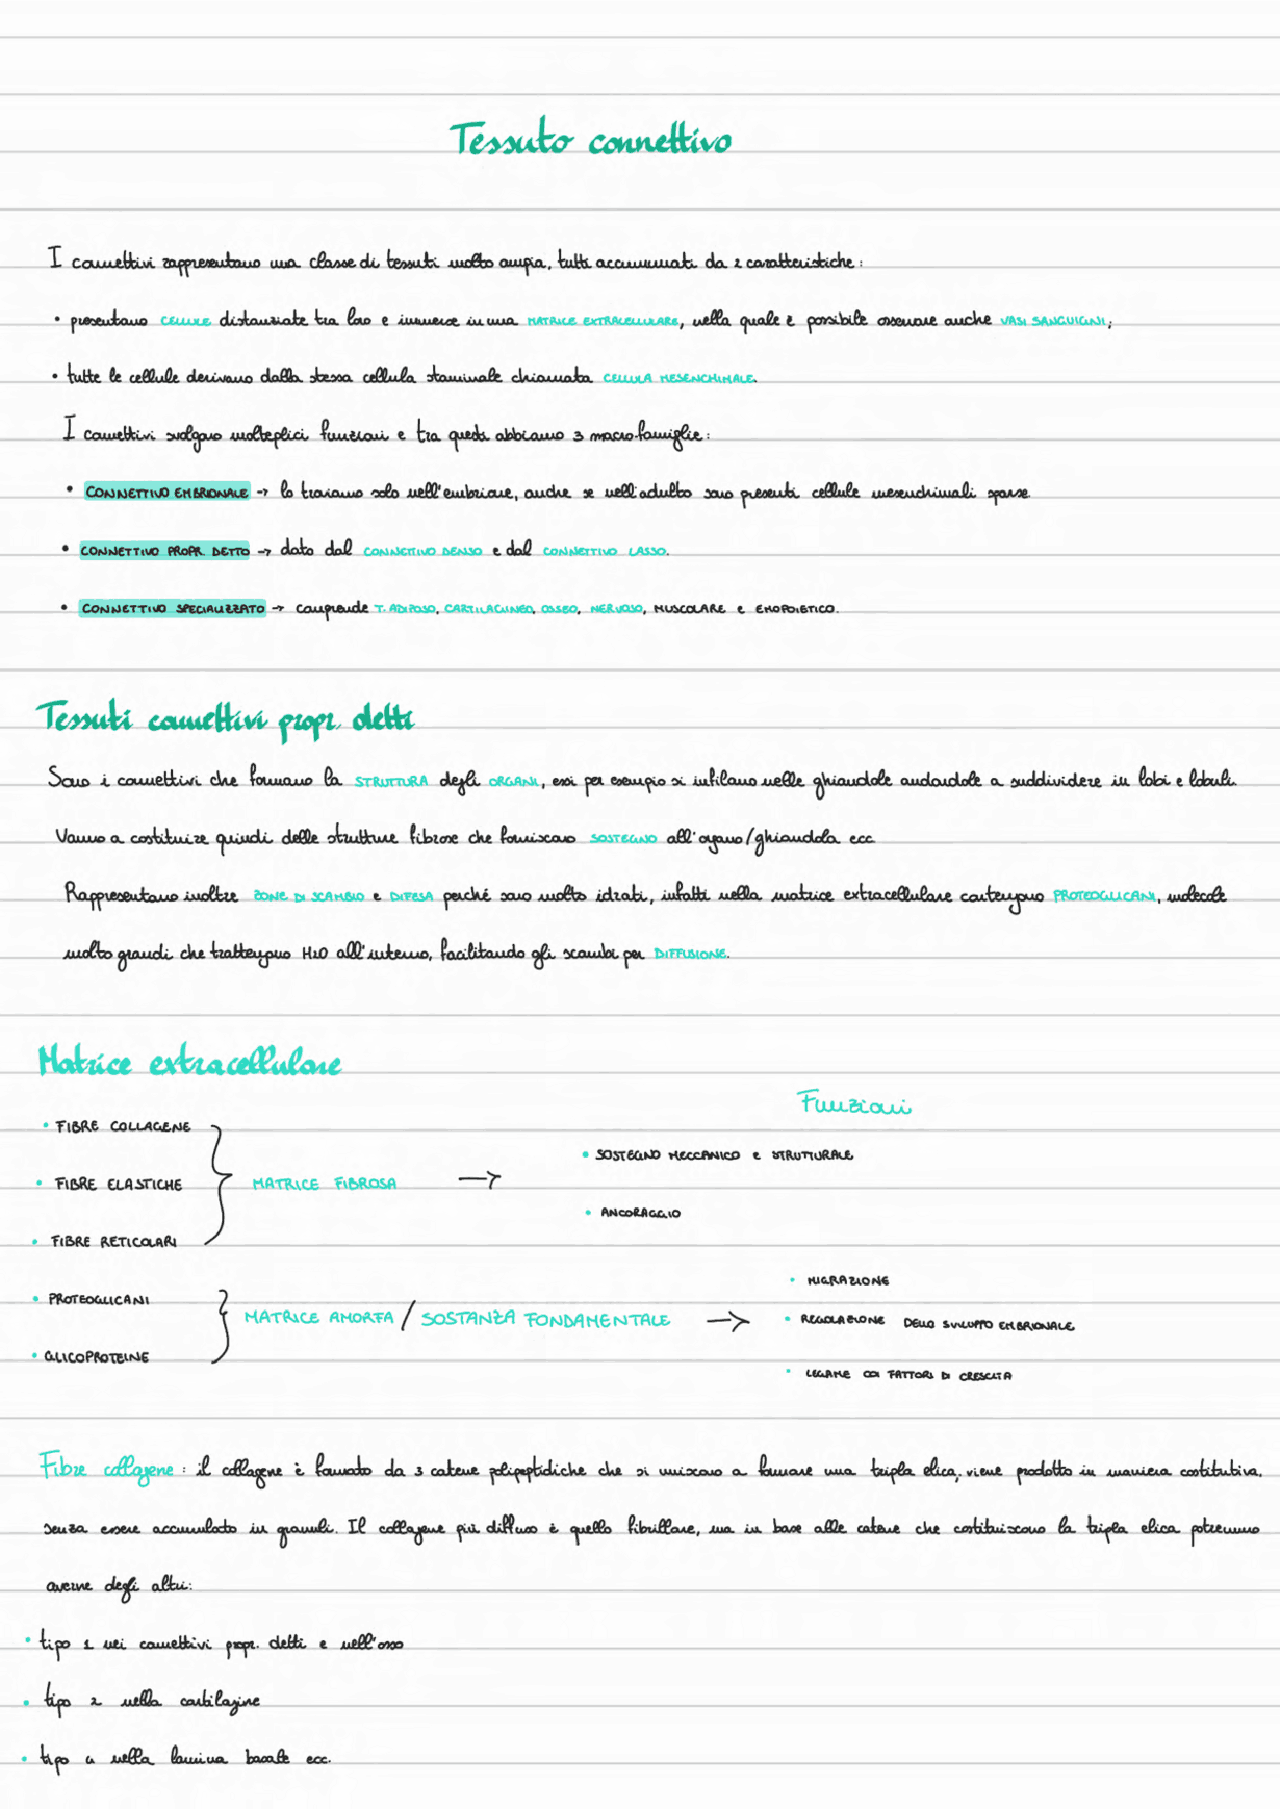 Tessuto connettivo
I connettivi rappresentano una classe di tessuti molto ampia, tutti accumunati da 2 caratteristiche:
• presentano CELLULE distanziate tra loro e immerse in una MATRICE EXTRACELLULARE, nella quale è possibile osservare anche VASI SANGUIGNI;
• tutte le cellule derivano dalla stessa cellula staminale chiamata CELLULA MESENCHIMALE.
I connettivi svolgono molteplici funzioni e tra questi abbiamo 3 macro-famiglie:
• CONNETTIVO EMBRIONALE → lo troviamo solo nell'embrione, anche se nell'adulto sono presenti cellule mesenchimali sparse
• CONNETTIVO PROPR. DETTO → dato dal CONNETTIVO DENSO e dal CONNETTIVO LASSO.
• CONNETTIVO SPECIALIZZATO → comprende T. ADIPOSO, CARTILAGINEO, OSSEO, NERVOSO, MUSCOLARE E EMOPOIETICO.
Tessuti connettivi propr. detti
Sono i connettivi che formano la STRUTTURA degli ORGANI, essi per esempio si infilano nelle ghiandole andandole a suddividere in lobi e lobuli.
Vanno a costituire quindi delle strutture fibrose che forniscono SOSTEGNO all'organo/ghiandola ecc
Rappresentano inoltre ZONE DI SCAMBIO e DIFESA perché sono molto idrati, infatti nella matrice extracellulare contengono PROTEOGLICANI, molecole
molto grandi che trattengono H2O all'interno, facilitando gli scambi per DIFFUSIONE.
Matrice extracellulare
Funzioni
• FIBRE COLLAGENE
• SOSTEGNO MECCANICO E STRUTTURALE
• FIBRE ELASTICHE MATRICE FIBROSA →
• ANCORAGGIO
• FIBRE RETICOLARI
• MIGRAZIONE
• PROTEOGLICANI
MATRICE AMORFA / SOSTANZA FONDAMENTALE → • REGOLAZIONE DELLO SVILUPPO EMBRIONALE
• GLICOPROTEINE
• LEGAME COI FATTORI DI CRESCITA
Fibre collagene: il collagene è formato da 3 catene polipeptidiche che si uniscono a formare una tripla elica, viene prodotto in maniera costitutiva,
senza essere accumulato in granuli. Il collagene più diffuso è quello fibrillare, ma in base alle catene che costituiscono la tripla elica potremmo
averne degli altri:
• tipo 1 nei connettivi propr. detti e nell'osso
• tipo 2 nella cartilagine
• tipo 4 nella lamina basale ecc.